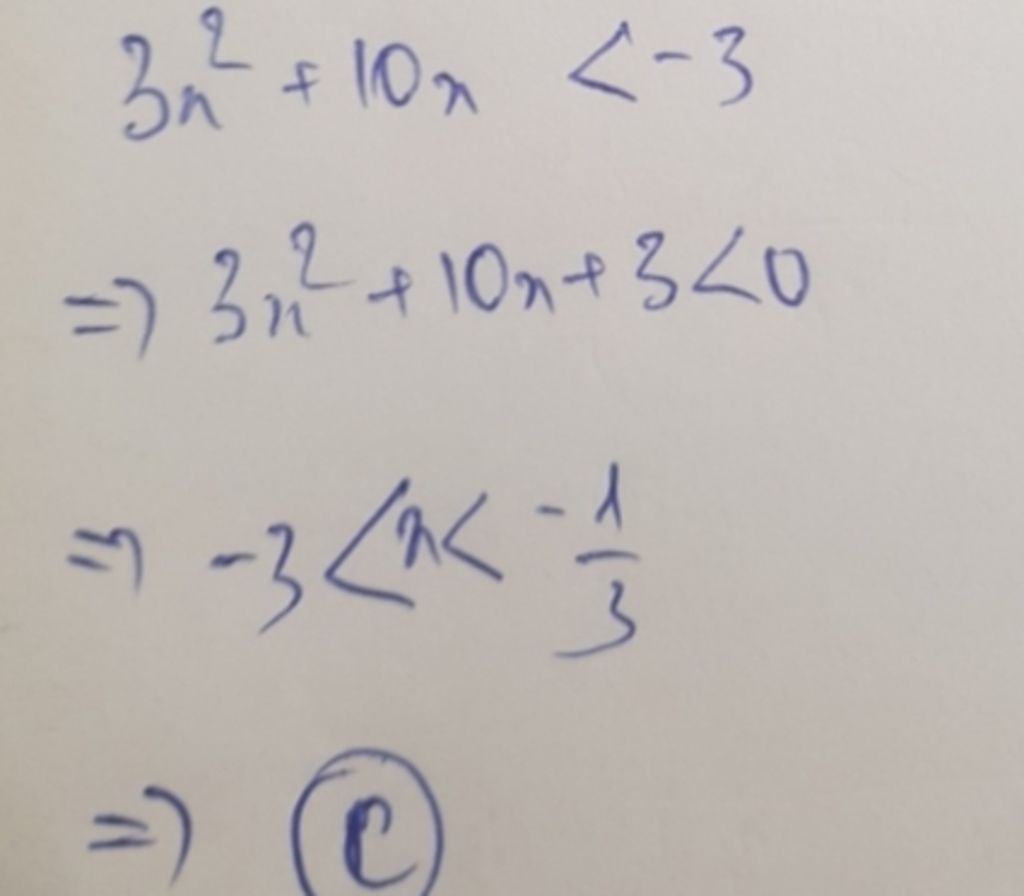 3x² + 10x < -3
=> 3x² + 10x + 3 < 0
=> -3 < x < -1/3
=> C